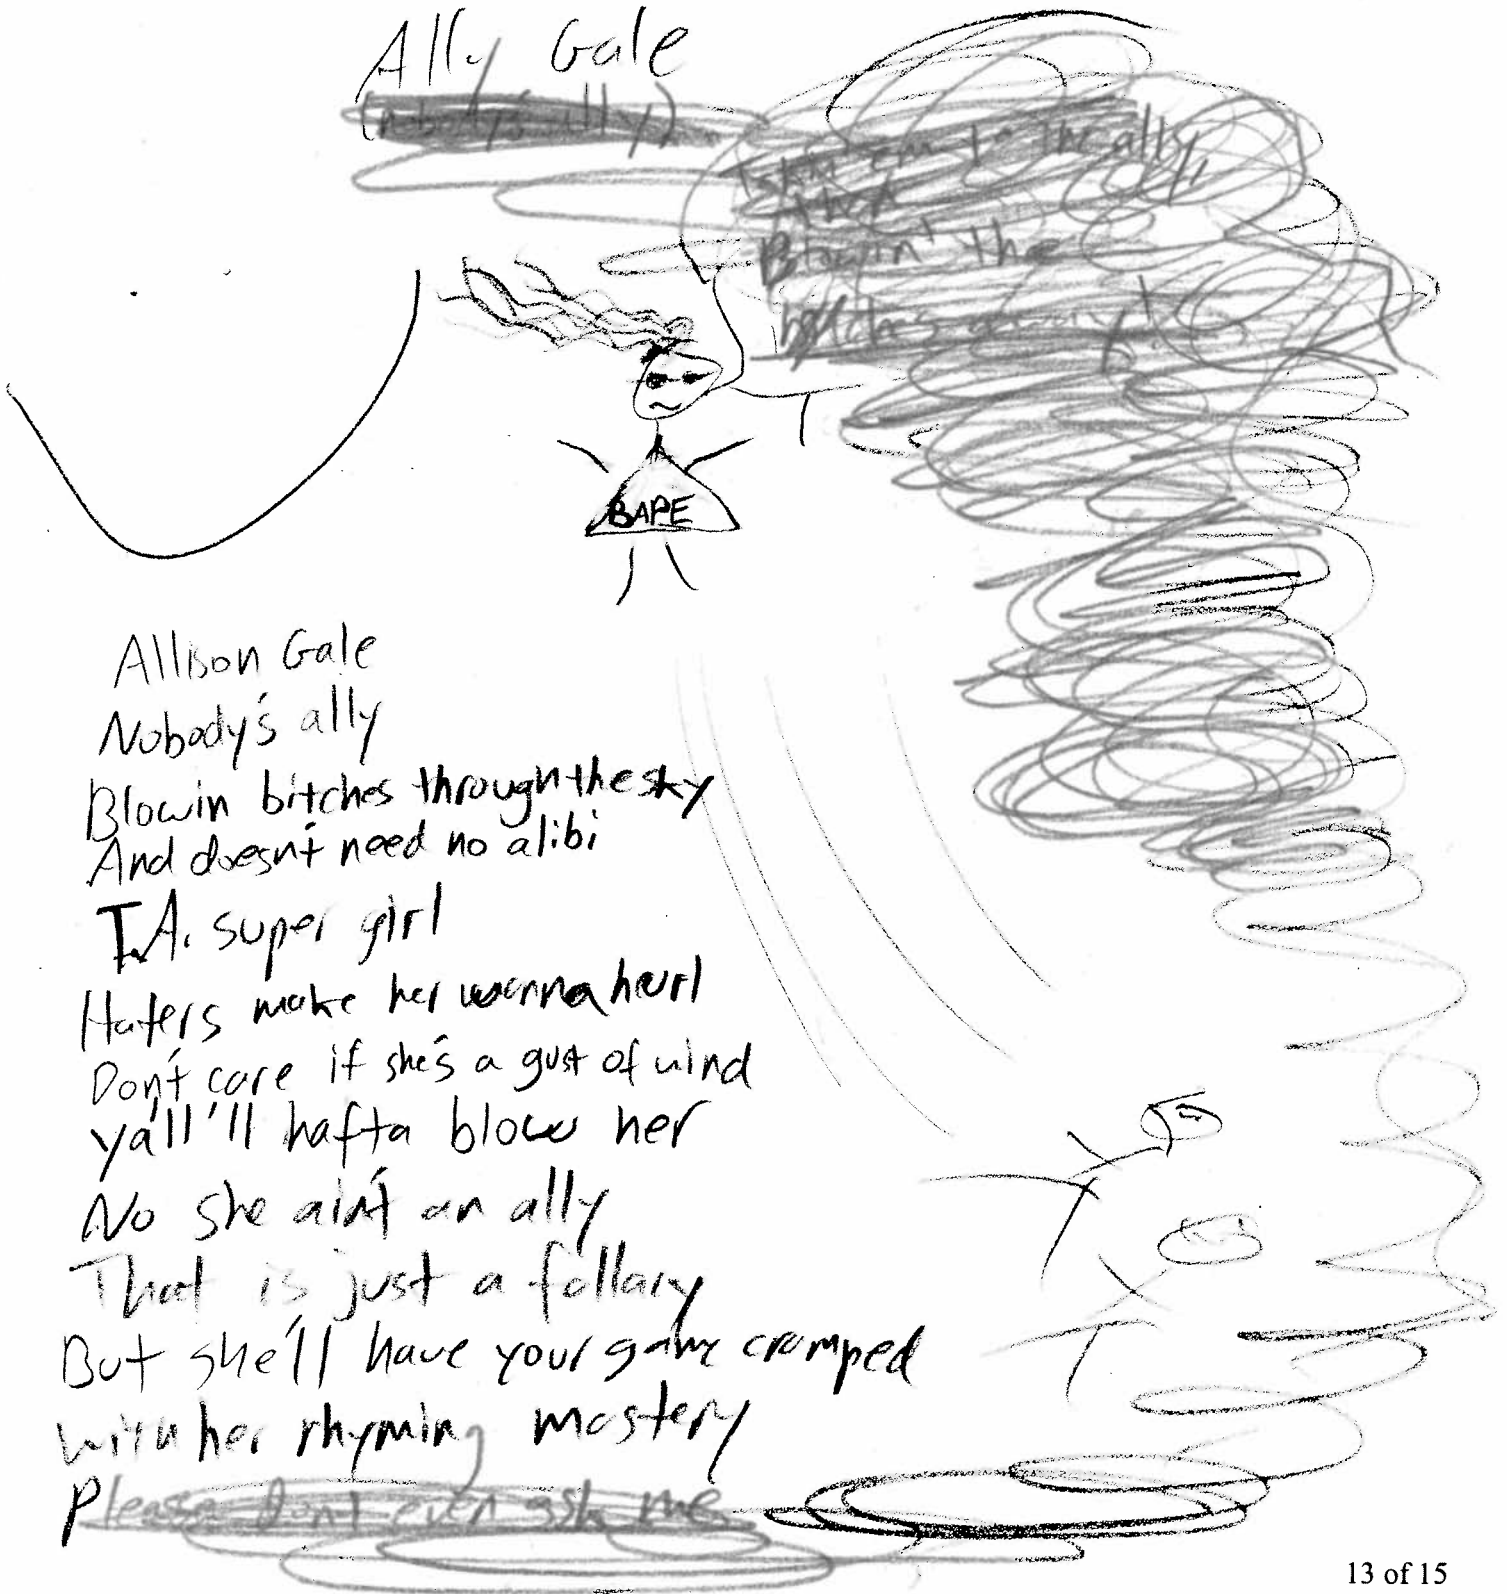 Ally Gale
(nobody's ally)
to the ally,
Blowin' the
BAPE
Allison Gale
Nobody's ally
Blowin bitches through the sky
And doesn't need no alibi
T.A. super girl
Haters make her wanna hurl
Don't care if she's a gust of wind
ya'll'll hafta blow her
No she ain't an ally
That is just a fallacy
But she'll have your game cramped
with her rhyming mastery
Please don't even ask me
13 of 15